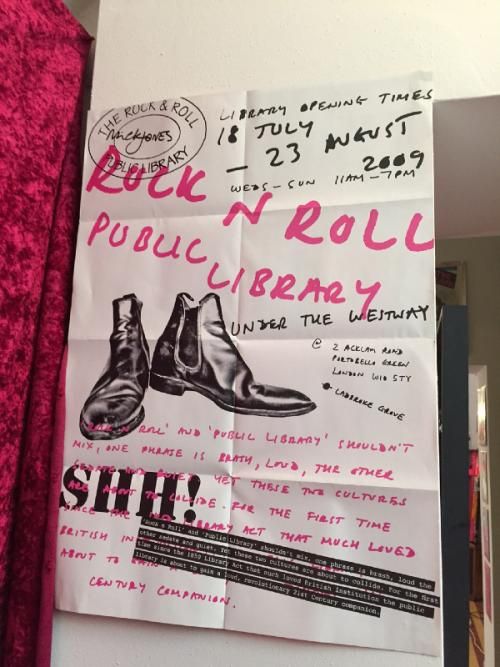 THE ROCK & ROLL
MICK JONES
PUBLIC LIBRARY
LIBRARY OPENING TIMES
18 JULY
- 23 AUGUST
2009
WEDS - SUN 11AM - 7PM
ROCK
N ROLL
PUBLIC
LIBRARY
UNDER THE WESTWAY
@ 2 ACKLAM ROAD
PORTOBELLO GREEN
LONDON W10 5TY
LADBROKE GROVE
'ROCK N ROLL' AND 'PUBLIC LIBRARY' SHOULDN'T
MIX, ONE PHRASE IS BRASH, LOUD, THE OTHER
SEDATE AND QUIET. YET THESE TWO CULTURES
ARE ABOUT TO COLLIDE. FOR THE FIRST TIME
SINCE THE LIBRARY ACT THAT MUCH LOVED
BRITISH IN
ABOUT TO
CENTURY COMPANION.
SHH!
'Rock n Roll' and 'Public Library' shouldn't mix, one phrase is brash, loud the
other sedate and quiet. Yet these two cultures are about to collide. For the first
time since the 1850 Library Act that much loved British institution the public
library is about to gain a loud, revolutionary 21st Century companion.